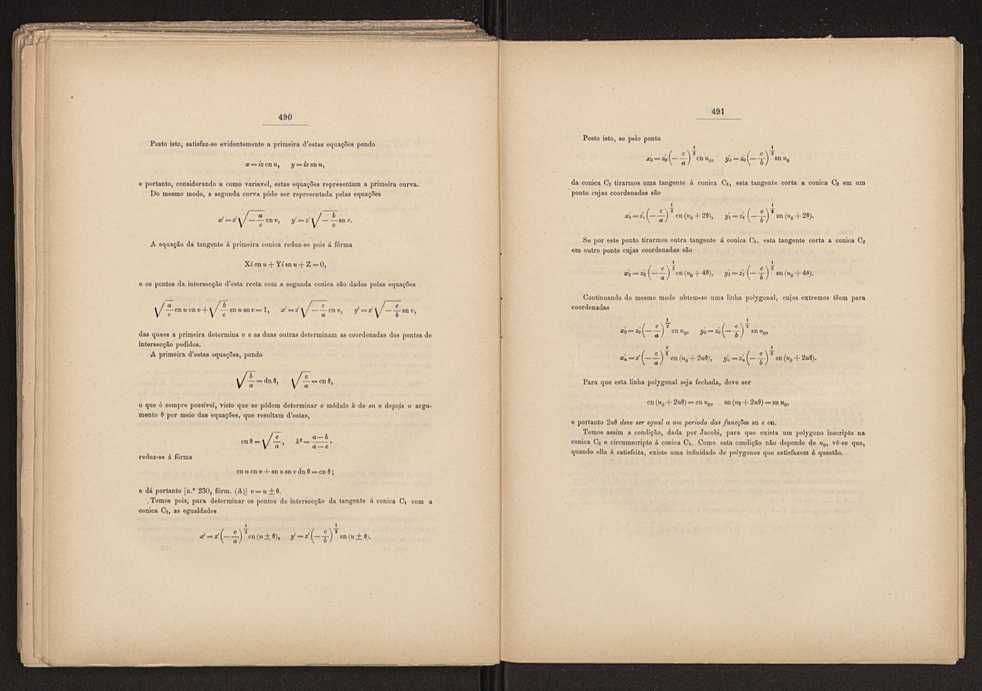 490
Posto isto, satisfaz-se evidentemente a primeira d'estas equações pondo
x = iz cn u, y = iz sn u,
e portanto, considerando u como variavel, estas equações representam a primeira curva.
Do mesmo modo, a segunda curva póde ser representada pelas equações
A equação da tangente á primeira conica reduz-se pois á fórma
Xi cn u + Yi sn u + Z = 0,
e os pontos da intersecção d'esta recta com a segunda conica são dados pelas equações
das quaes a primeira determina v e as duas outras determinam as coordenadas dos pontos de
intersecção pedidos.
A primeira d'estas equações, pondo
√(b/a) = dn θ, √(c/a) = cn θ,
o que é sempre possivel, visto que se pódem determinar o módulo k de sn e depois o argu-
mento θ por meio das equações, que resultam d'estas,
cn θ = √(c/a), k² = (a − b)/(a − c),
reduz-se á fórma
cn u cn v + sn u sn v dn θ = cn θ;
e dá portanto [n.º 250, fórm. (A)] v = u ± θ.
Temos pois, para determinar os pontos de intersecção da tangente á conica C₁ com a
conica C₂, as egualdades
x′ = z′(−c/a)^½ cn (u ± θ), y′ = z′(−c/b)^½ sn (u ± θ).
491
Posto isto, se pelo ponto
x′₀ = z′₀(−c/a)^½ cn u₀, y′₀ = z′₀(−c/b)^½ sn u₀
da conica C₂ tirarmos uma tangente á conica C₁, esta tangente corta a conica C₂ em um
ponto cujas coordenadas são
x′₁ = z′₁(−c/a)^½ cn (u₀ + 2θ), y′₁ = z′₁(−c/b)^½ sn (u₀ + 2θ).
Se por este ponto tirarmos outra tangente á conica C₁, esta tangente corta a conica C₂
em outro ponto cujas coordenadas são
x′₂ = z′₂(−c/a)^½ cn (u₀ + 4θ), y′₂ = z′₂(−c/b)^½ sn (u₀ + 4θ).
Continuando do mesmo modo obtem-se uma linha polygonal, cujos extremos têem para
coordenadas
x′₀ = z′₀(−c/a)^½ cn u₀, y′₀ = z′₀(−c/b)^½ sn u₀,
Para que esta linha polygonal seja fechada, deve ser
cn (u₀ + 2nθ) = cn u₀, sn (u₀ + 2nθ) = sn u₀,
e portanto 2nθ deve ser egual a um periodo das funcções sn e cn.
Temos assim a condição, dada por Jacobi, para que exista um polygono inscripto na
conica C₂ e circumscripto á conica C₁. Como esta condição não depende de u₀, vê-se que,
quando ella é satisfeita, existe uma infinidade de polygonos que satisfazem á questão.